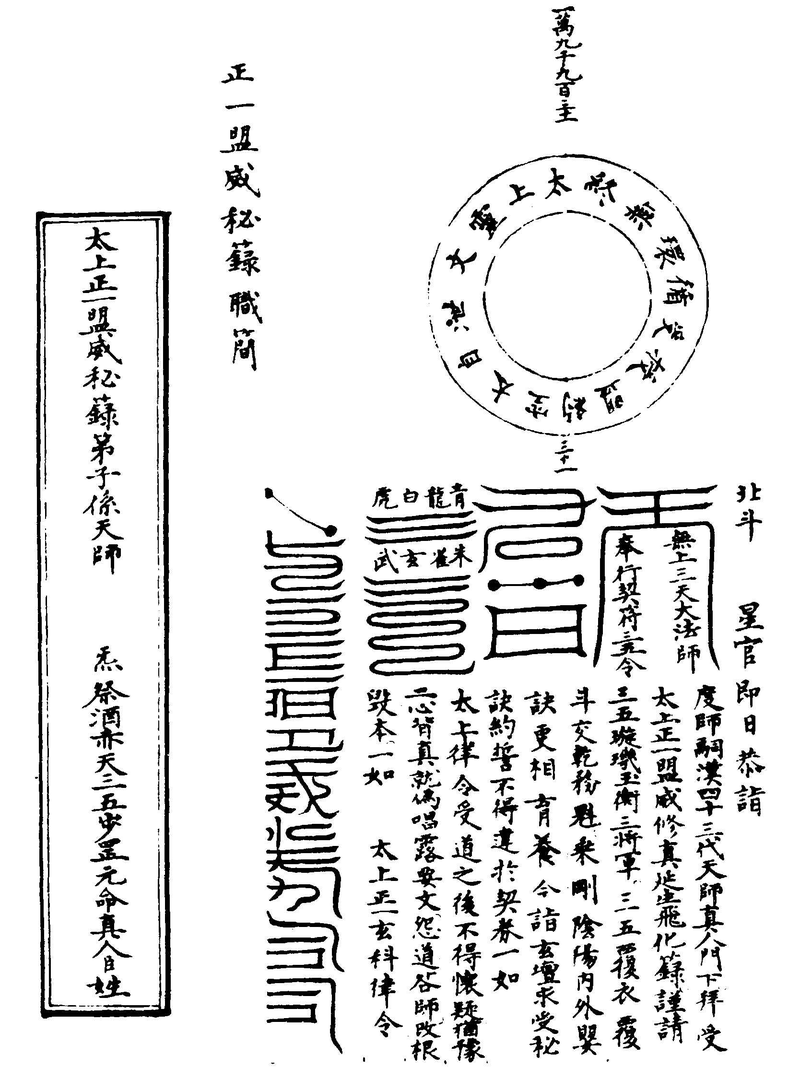 一萬九千九百
太上
無
環
盟
太
自
靈
三十一
北斗　星官　即日恭詣
度師嗣漢四十三代天師真人門下拜受
太上正一盟威修真延生飛化籙謹請
三五璇璣玉衡三將軍三五覆衣覆
斗交乾移魁乘剛陰陽内外嬰
訣更相育養今詣玄壇求受秘
訣約誓不得違於契券一如
太上律令受道之後不得懷疑猶豫
二心背真就偽唱露要文怨道咎師改根
毀本一如　太上正一玄科律令
無上三天大法師
奉行契符三五令
青龍白虎
朱雀玄武
正一盟威秘籙職簡
太上正一盟威秘籙弟子係天師　炁祭酒赤天三五步罡元命真人臣姓